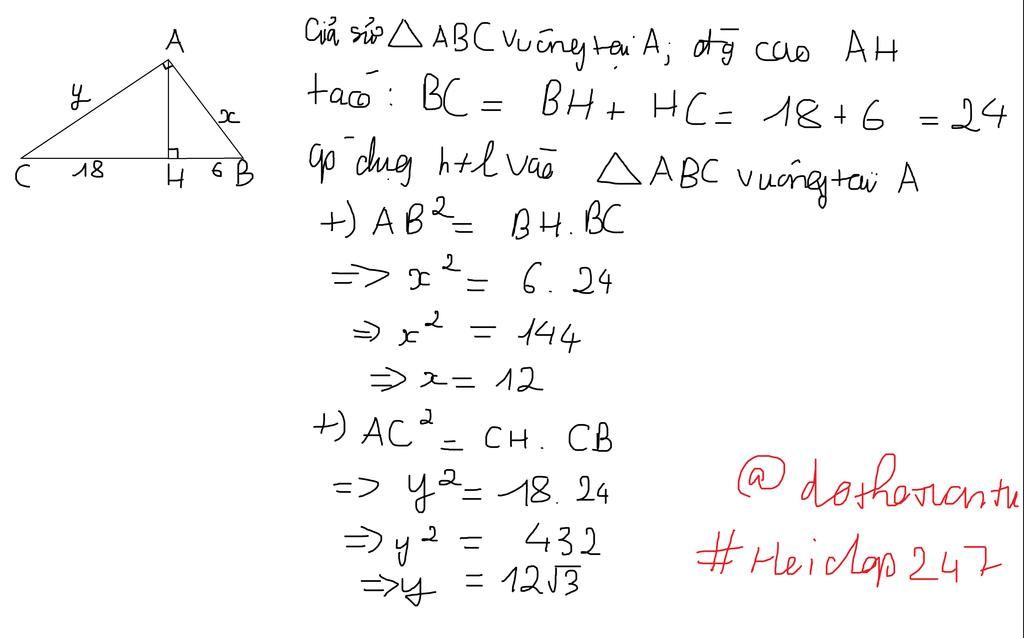 A
y
x
C 18 H 6 B
Giả sử △ABC vuông tại A; đg cao AH
ta có: BC = BH + HC = 18 + 6 = 24
áp dụng htl vào △ABC vuông tại A
+) AB² = BH.BC
=> x² = 6.24
=> x² = 144
=> x = 12
+) AC² = CH.CB
=> y² = 18.24
=> y² = 432
=> y = 12√3
#Hoidap247